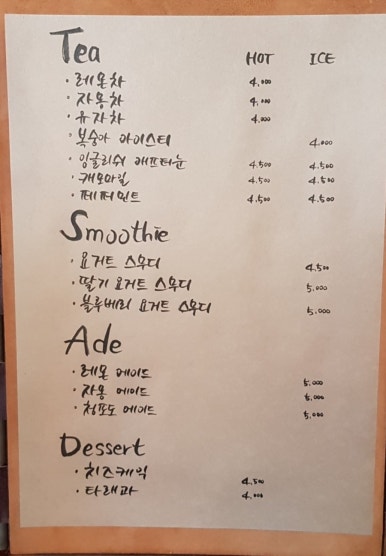 Tea HOT ICE
· 레몬차 4,000
· 자몽차 4,000
· 유자차 4,000
· 복숭아 아이스티 4,000
· 잉글리쉬 애프터눈 4,500 4,500
· 캐모마일 4,500 4,500
· 페퍼민트 4,500 4,500
Smoothie
· 요거트 스무디 4,500
· 딸기 요거트 스무디 5,000
· 블루베리 요거트 스무디 5,000
Ade
· 레몬 에이드 5,000
· 자몽 에이드 5,000
· 청포도 에이드 5,000
Dessert
· 치즈케익 4,500
· 타래과 4,000